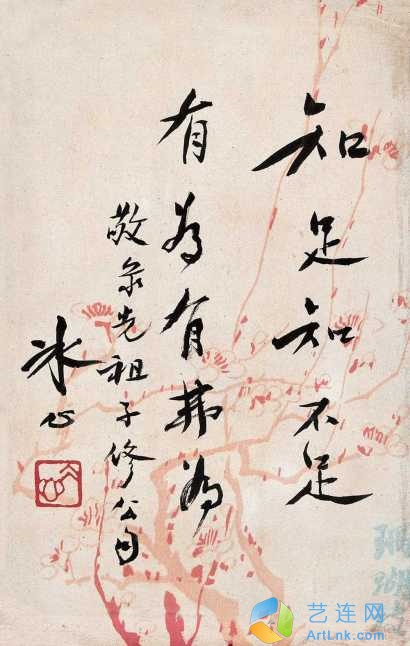 知足知不足
有為有弗為
敬录先祖子修公句
冰心
冰心
珊瑚
艺连网
ArtLnk.com